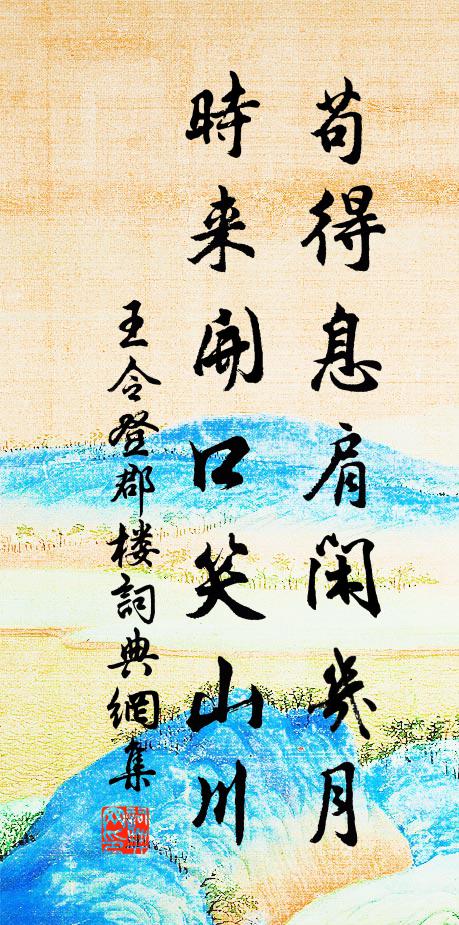 苟得息肩閑歲月
時来開口笑山川
王令登郡楼詞典網集